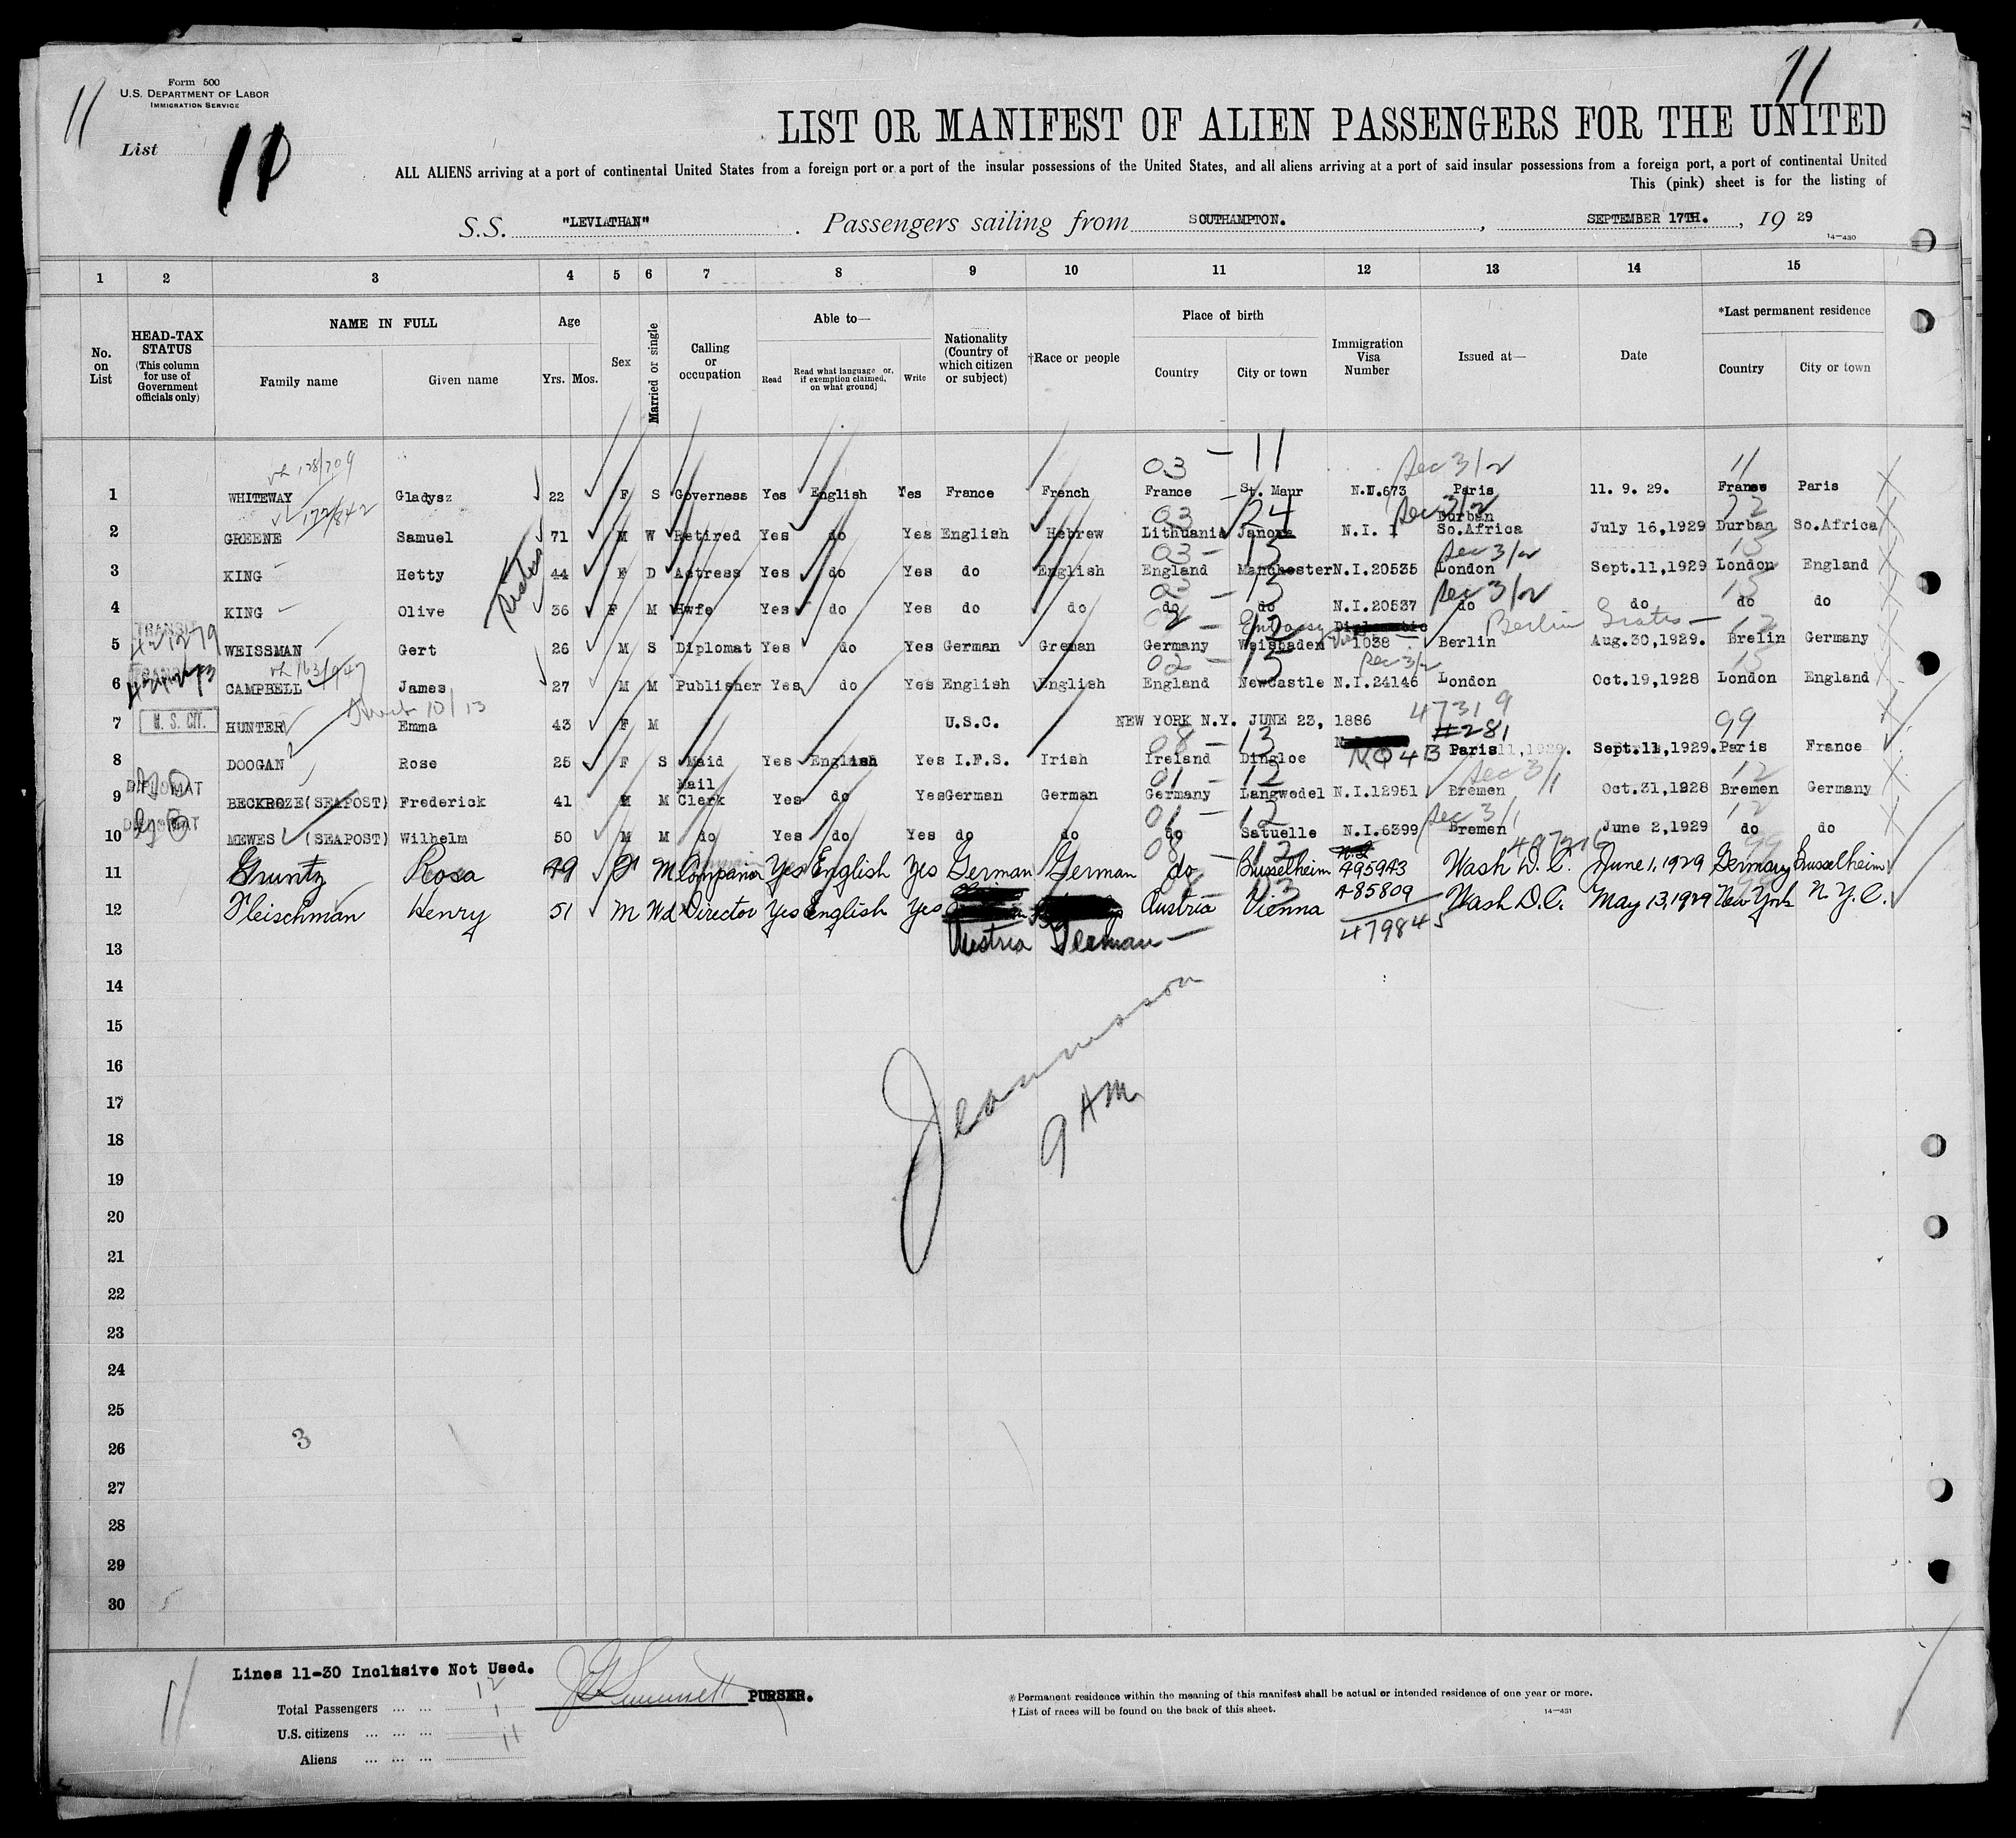 Form 500
U.S. DEPARTMENT OF LABOR
IMMIGRATION SERVICE
11
11
List 11
LIST OR MANIFEST OF ALIEN PASSENGERS FOR THE UNITED
ALL ALIENS arriving at a port of continental United States from a foreign port or a port of the insular possessions of the United States, and all aliens arriving at a port of said insular possessions from a foreign port, a port of continental United
This (pink) sheet is for the listing of
S.S. "LEVIATHAN" . Passengers sailing from SOUTHAMPTON. , SEPTEMBER 17TH. , 19 29
14—430
1 2 3 4 5 6 7 8 9 10 11 12 13 14 15
No. on List
HEAD-TAX STATUS (This column for use of Government officials only)
NAME IN FULL
Family name Given name
Age
Yrs. Mos.
Sex
Married or single
Calling or occupation
Able to—
Read Read what language or, if exemption claimed, on what ground] Write
Nationality (Country of which citizen or subject)
†Race or people
Place of birth
Country City or town
Immigration Visa Number
Issued at—
Date
*Last permanent residence
Country City or town
128/709 03 - 11 Sec 3/2 11
1 WHITEWAY Gladysz 22 F S Governess Yes English Yes France French France St. Maur N.I.673 Paris 11. 9. 29. France Paris
172/842 03 - 24 Sec 3/2 Durban
2 GREENE Samuel 71 M W Retired Yes do Yes English Hebrew Lithuania Janova N.I. 1 So.Africa July 16,1929 Durban So.Africa
03 - 13 Sec 3/2 13
3 KING Hetty 44 F D Actress Yes do Yes do English England Manchester N.I.20535 London Sept.11,1929 London England
Sisters
03 - 13 Sec 3/2 13
4 KING Olive 36 F M Hwfe Yes do Yes do do do do N.I.20537 do do do do
TRANSIT 02 - 12 Embassy Diplomatic Berlin 12
5 WEISSMAN Gert 26 M S Diplomat Yes do Yes German Greman Germany Weisbaden 1038 Berlin Aug.30,1929. Brelin Germany
TRANSIT 163/947 02 - 13 Sec 3/2 13
6 CAMPBELL James 27 M M Publisher Yes do Yes English English England NewCastle N.I.24146 London Oct.19,1928 London England
U. S. CIT. 10/13 47319
7 HUNTER Emma 43 F M U.S.C. NEW YORK N.Y. JUNE 23, 1886 #281 99
08 - 13
8 DOOGAN Rose 25 F S Maid Yes English Yes I.F.S. Irish Ireland Dingloe NQ 43 Paris Sept.11,1929. Paris France
DIPLOMAT Mail 01 - 12 Sec 3/1 12
9 BECKROZE (SEAPOST) Frederick 41 M M Clerk Yes do Yes German German Germany Langwedel N.I.12951 Bremen Oct.31,1928 Bremen Germany
DIPLOMAT 01 - 12 Sec 3/1 12
10 MEWES (SEAPOST) Wilhelm 50 M M do Yes do Yes do do do Satuelle N.I.6399 Bremen June 2,1929 do do
08 - 12 497216 99
11 Gruntz Rosa 49 F M Companion Yes English Yes German German do Brusselheim 495943 Wash D.C. June 1, 1929 Germany Brusselheim
12 Fleischman Henry 51 M Wd Director Yes English Yes Austria Vienna 485809 Wash D.C. May 13, 1929 New York N.Y.C.
13 Austria German 479845
14
15
16
Jeannesson
17
9 AM
18
19
20
21
22
23
24
25
26
3
27
28
29
30
Lines 11-30 Inclusive Not Used.
PURSER.
Total Passengers 12
U.S. citizens 1
Aliens 11
11
*Permanent residence within the meaning of this manifest shall be actual or intended residence of one year or more.
† List of races will be found on the back of this sheet.
14—431